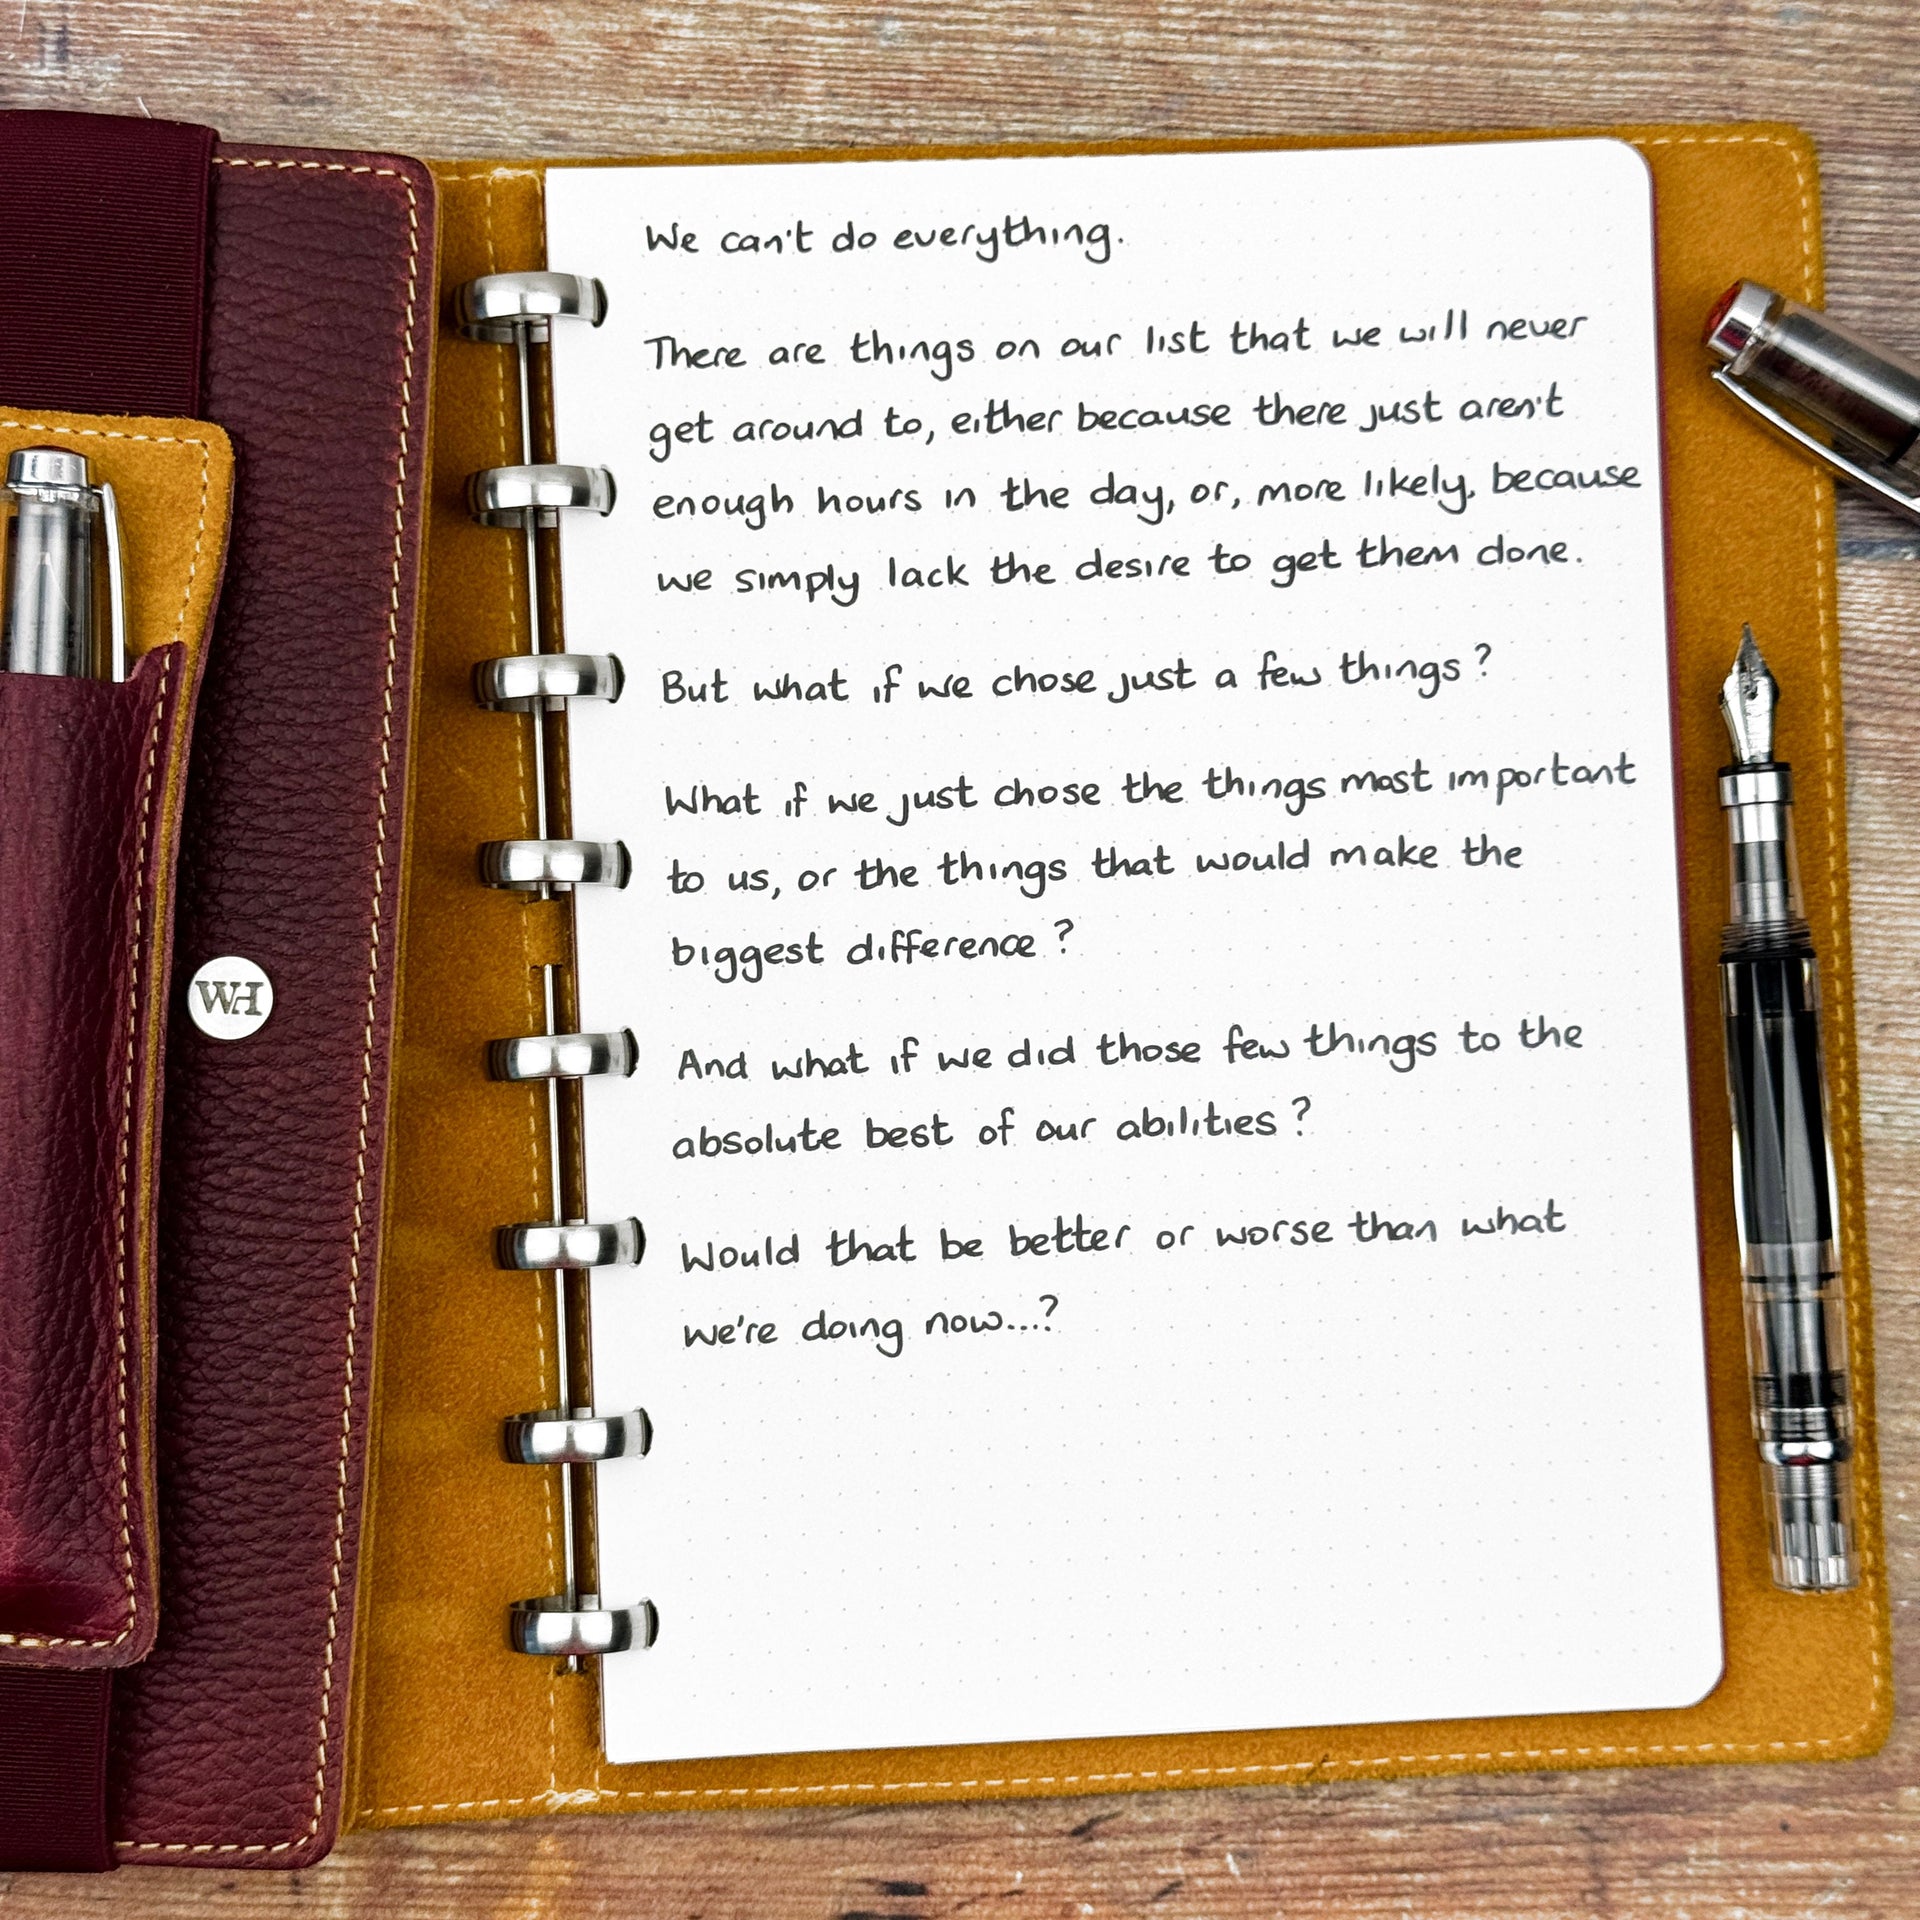 We can't do everything.
There are things on our list that we will never
get around to, either because there just aren't
enough hours in the day, or, more likely, because
we simply lack the desire to get them done.
But what if we chose just a few things?
What if we just chose the things most important
to us, or the things that would make the
biggest difference?
And what if we did those few things to the
absolute best of our abilities?
Would that be better or worse than what
we're doing now...?
WH